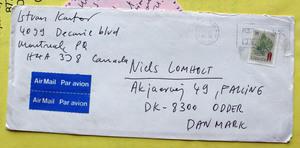 Istvan Kantor
4099 Decarie blvd
Montreal PQ
H4A 3J8 Canada
Air Mail Par avion
Air Mail Par avion
Niels LOMHOLT
Akjaervej 49, FALLING
DK-8300 ODDER
DANMARK